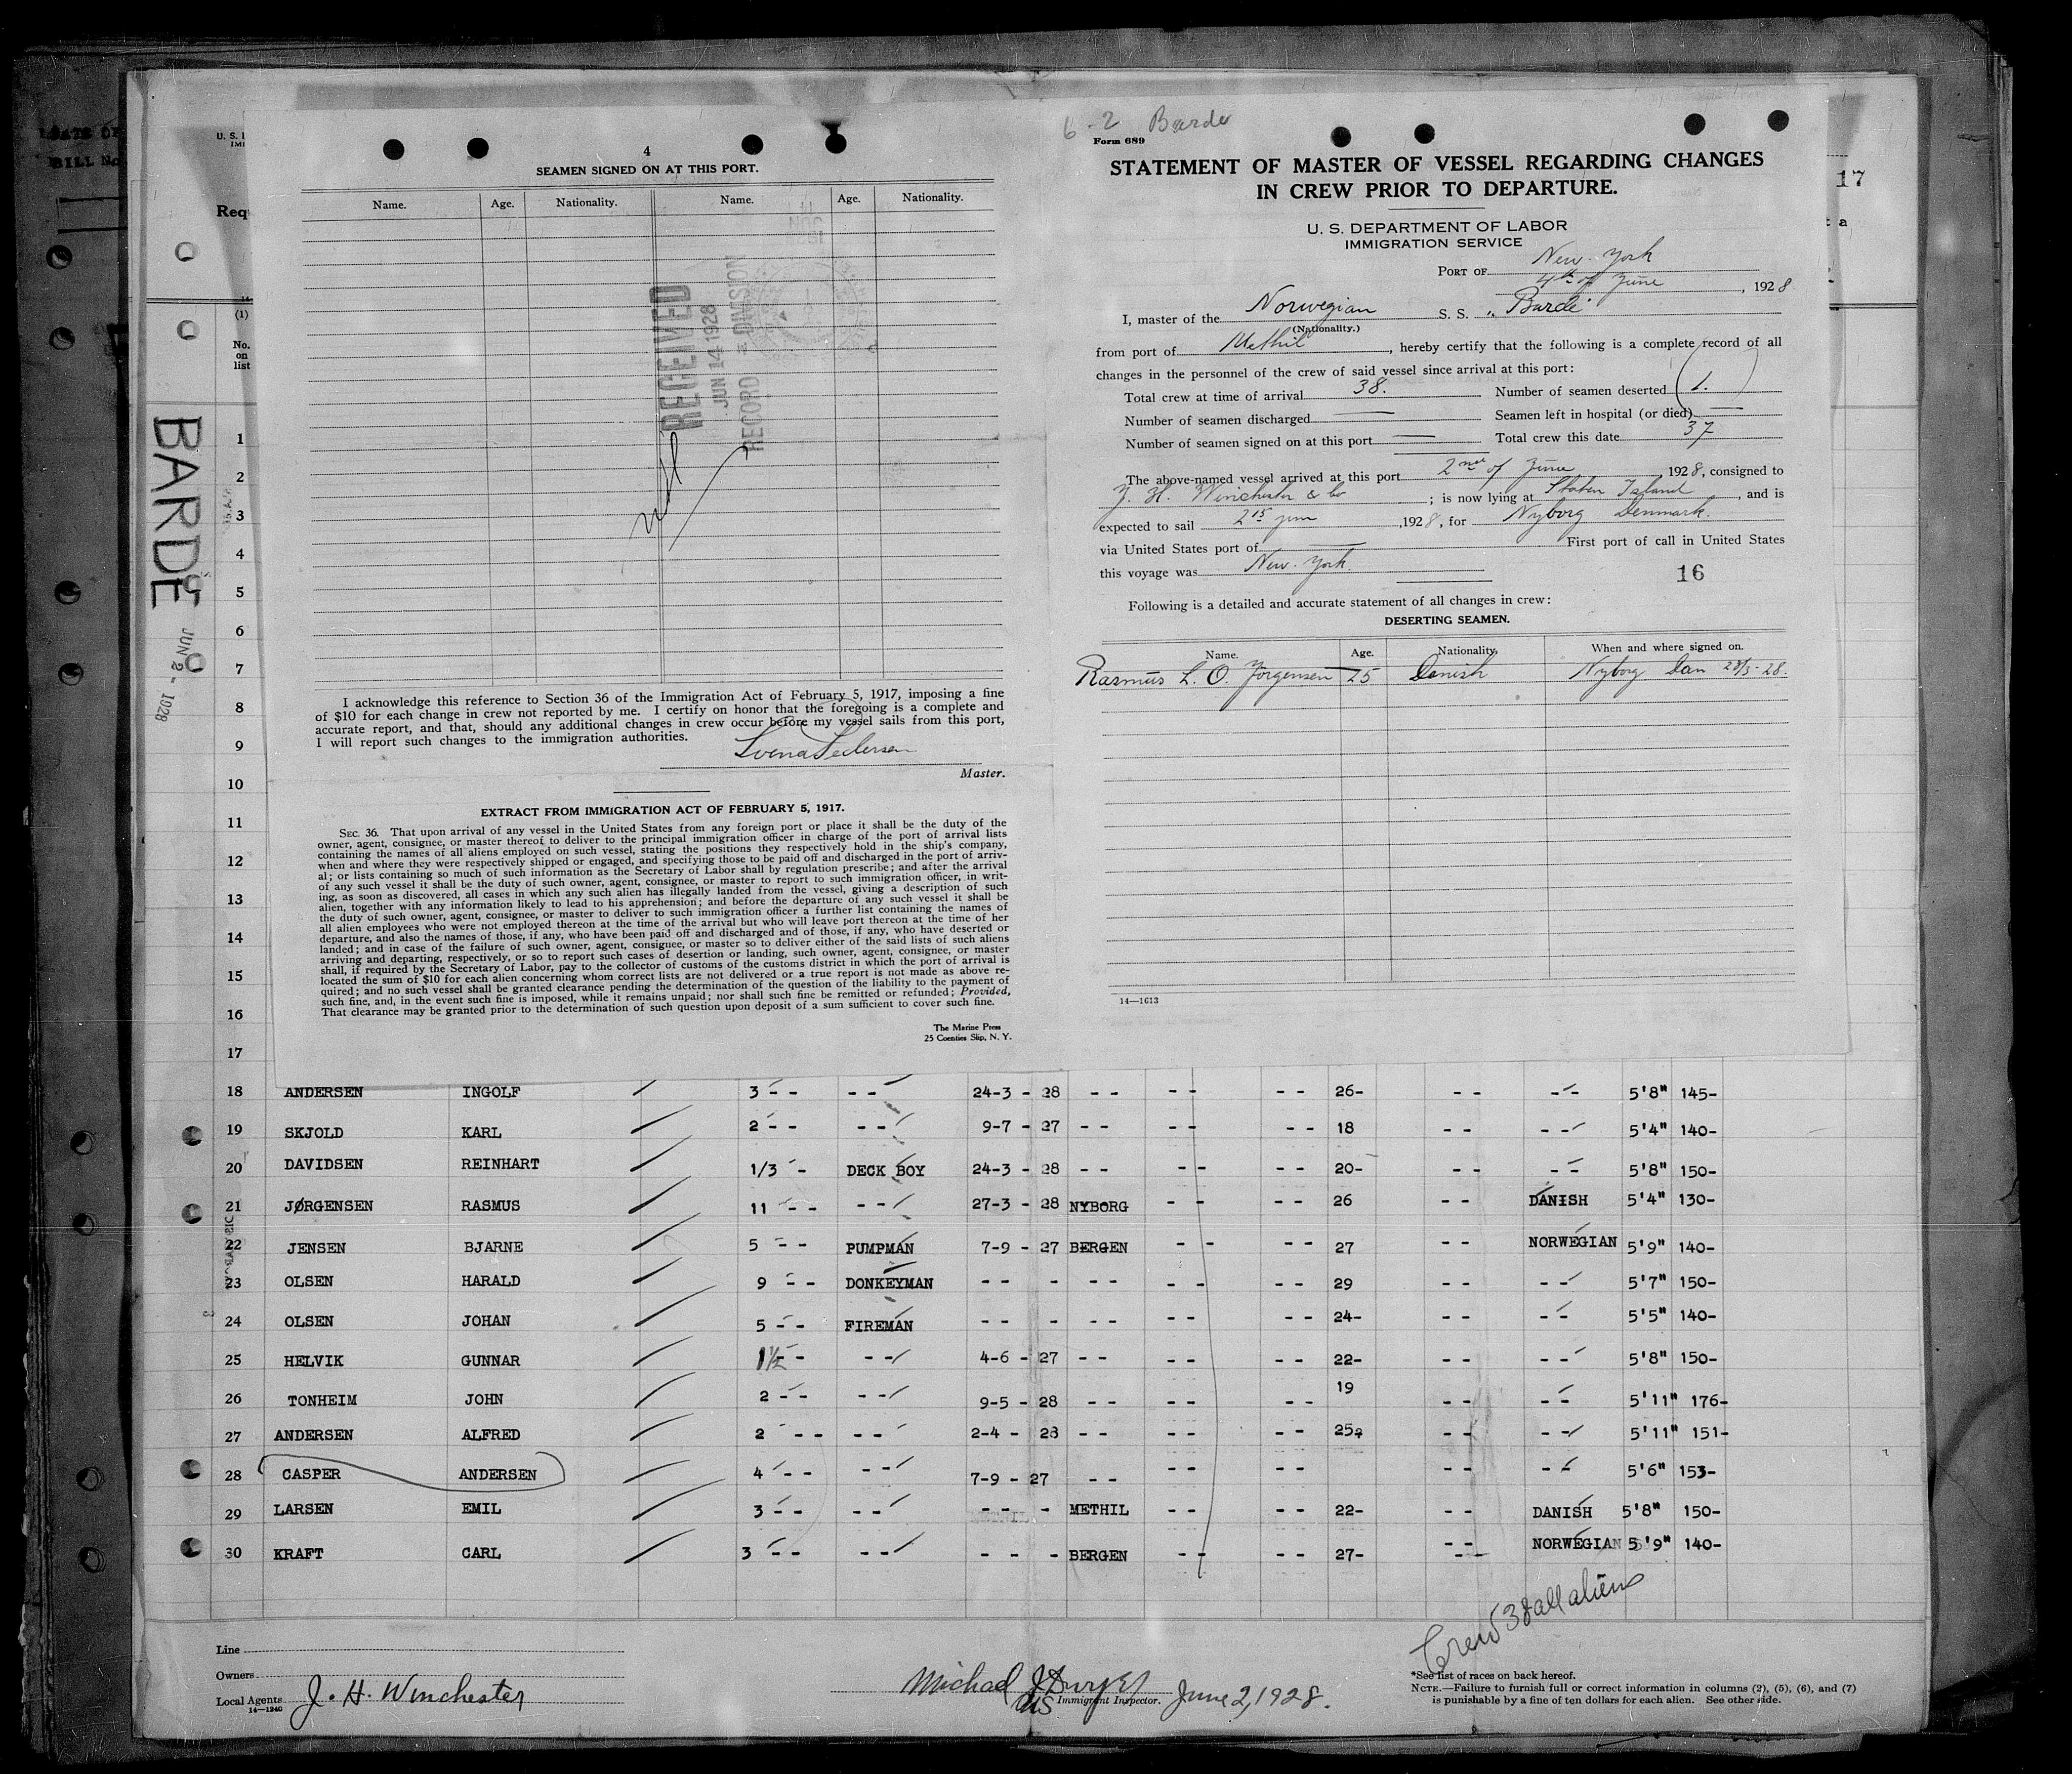 DATE OF
BILL No.
U. S.
IMI
Req
14—
(1)
No.
on
list
BARDE
JUN 2 - 1928
1
2
3
4
5
6
7
8
9
10
11
12
13
14
15
16
17
4
SEAMEN SIGNED ON AT THIS PORT.
Name. Age. Nationality. Name. Age. Nationality.
RECEIVED
JUN 14 1928
RECORD DIVISION
I acknowledge this reference to Section 36 of the Immigration Act of February 5, 1917, imposing a fine
of $10 for each change in crew not reported by me. I certify on honor that the foregoing is a complete and
accurate report, and that, should any additional changes in crew occur before my vessel sails from this port,
I will report such changes to the immigration authorities.
Pedersen
Master.
EXTRACT FROM IMMIGRATION ACT OF FEBRUARY 5, 1917.
SEC. 36. That upon arrival of any vessel in the United States from any foreign port or place it shall be the duty of the
owner, agent, consignee, or master thereof to deliver to the principal immigration officer in charge of the port of arrival lists
containing the names of all aliens employed on such vessel, stating the positions they respectively hold in the ship's company,
when and where they were respectively shipped or engaged, and specifying those to be paid off and discharged in the port of arriv-
al; or lists containing so much of such information as the Secretary of Labor shall by regulation prescribe; and after the arrival
of any such vessel it shall be the duty of such owner, agent, consignee, or master to report to such immigration officer, in writ-
ing, as soon as discovered, all cases in which any such alien has illegally landed from the vessel, giving a description of such
alien, together with any information likely to lead to his apprehension; and before the departure of any such vessel it shall be
the duty of such owner, agent, consignee, or master to deliver to such immigration officer a further list containing the names of
all alien employees who were not employed thereon at the time of the arrival but who will leave port thereon at the time of her
departure, and also the names of those, if any, who have been paid off and discharged and of those, if any, who have deserted or
landed; and in case of the failure of such owner, agent, consignee, or master so to deliver either of the said lists of such aliens
arriving and departing, respectively, or so to report such cases of desertion or landing, such owner, agent, consignee, or master
shall, if required by the Secretary of Labor, pay to the collector of customs of the customs district in which the port of arrival is
located the sum of $10 for each alien concerning whom correct lists are not delivered or a true report is not made as above re-
quired; and no such vessel shall be granted clearance pending the determination of the question of the liability to the payment of
such fine, and, in the event such fine is imposed, while it remains unpaid; nor shall such fine be remitted or refunded; Provided,
That clearance may be granted prior to the determination of such question upon deposit of a sum sufficient to cover such fine.
The Marine Press
25 Coenties Slip, N. Y.
6-2 Barde
Form 689
STATEMENT OF MASTER OF VESSEL REGARDING CHANGES
IN CREW PRIOR TO DEPARTURE.
U. S. DEPARTMENT OF LABOR
IMMIGRATION SERVICE
PORT OF New-York
4th of June, 1928
I, master of the Norwegian S. S. "Barde"
(Nationality.)
from port of Methil, hereby certify that the following is a complete record of all
changes in the personnel of the crew of said vessel since arrival at this port:
Total crew at time of arrival 38. Number of seamen deserted (1.)
Number of seamen discharged — Seamen left in hospital (or died) —
Number of seamen signed on at this port — Total crew this date 37
The above-named vessel arrived at this port 2nd of June, 1928, consigned to
J. H. Winchester & Co; is now lying at Staten Island, and is
expected to sail June, 1928, for Nyborg Denmark.
via United States port of — First port of call in United States
this voyage was New-York
16
Following is a detailed and accurate statement of all changes in crew:
DESERTING SEAMEN.
Name. Age. Nationality. When and where signed on.
Rasmus L. O. Jörgensen 25 Danish Nyborg Dan 28/3-28.
14—1613
17
t a
18 ANDERSEN INGOLF 3 - - - - 24-3 - 28 - - - - - - 26- - - - - 5'8" 145-
19 SKJOLD KARL 2 - - - - 9-7 - 27 - - - - - - 18 - - - - 5'4" 140-
20 DAVIDSEN REINHART 1/3 - - DECK BOY 24-3 - 28 - - - - - - 20- - - - - 5'8" 150-
21 JØRGENSEN RASMUS 11 - - - - 27-3 - 28 NYBORG - - - - 26 - - DANISH 5'4" 130-
22 JENSEN BJARNE 5 - - PUMPMAN 7-9 - 27 BERGEN - - - - 27 - - NORWEGIAN 5'9" 140-
23 OLSEN HARALD 9 - - DONKEYMAN - - - - - - - - - 29 - - - - 5'7" 150-
24 OLSEN JOHAN 5 - - FIREMAN - - - - - - - - - 24- - - - - 5'5" 140-
25 HELVIK GUNNAR 1½ - - - - 4-6 - 27 - - - - - - 22- - - - - 5'8" 150-
26 TONHEIM JOHN 2 - - - - 9-5 - 28 - - - - - - 19 - - - - 5'11" 176-
27 ANDERSEN ALFRED 2 - - - - 2-4 - 28 - - - - - - 25 - - - - 5'11" 151-
28 CASPER ANDERSEN 4 - - - - 7-9 - 27 - - - - - - - - - - 5'6" 153-
29 LARSEN EMIL 3 - - - - - - - METHIL - - - - 22- - - DANISH 5'8" 150-
30 KRAFT CARL 3 - - - - - - - BERGEN - - - - 27- - - NORWEGIAN 5'9" 140-
Crew 38 all aliens
Line
Owners
Local Agents J. H. Winchester
14—1240
Michael J Dwyer
US Immigrant Inspector. June 2, 1928.
*See list of races on back hereof.
NOTE.—Failure to furnish full or correct information in columns (2), (5), (6), and (7)
is punishable by a fine of ten dollars for each alien. See other side.